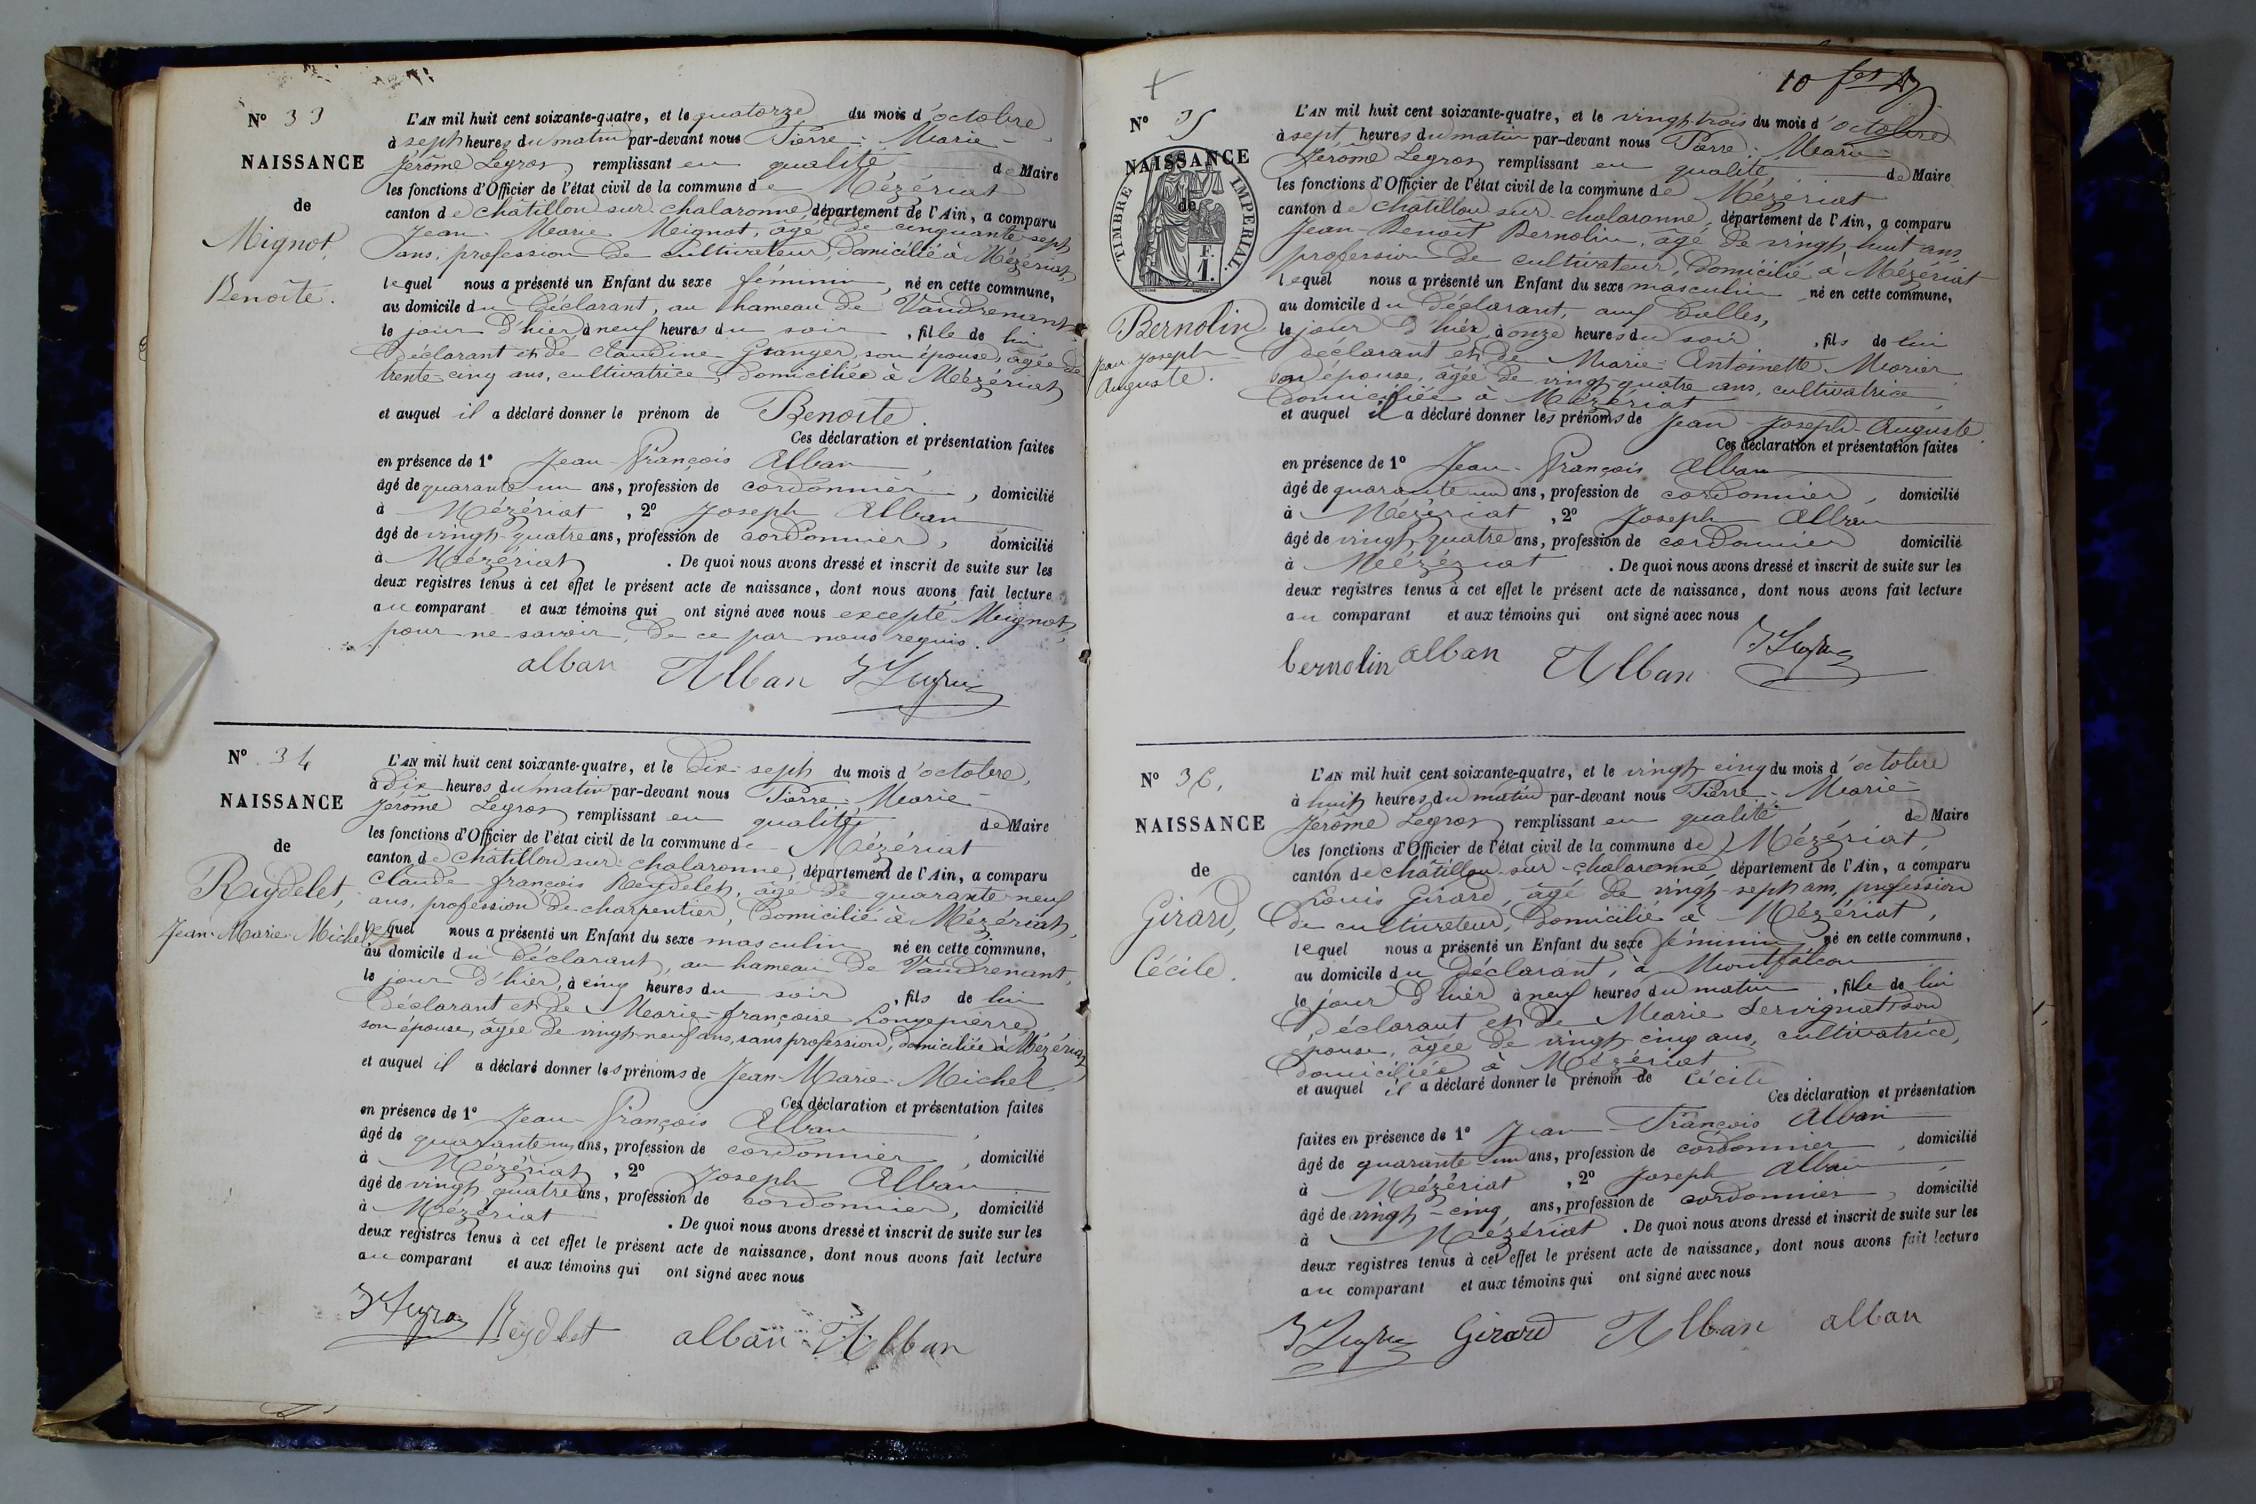 N° 33
NAISSANCE
de
Mignot,
Benoite.
L'AN mil huit cent soixante-quatre, et le quatorze du mois d'octobre
à sept heures du matin par-devant nous Pierre-Marie-
Jérôme Legros remplissant en qualité de Maire
les fonctions d'Officier de l'état civil de la commune de Mézériat
canton de châtillon-sur-chalaronne, département de l'Ain, a comparu
Jean-Marie Mignot, âgé de cinquante-sept
ans, profession de cultivateur, domicilié à Mézériat,
lequel nous a présenté un Enfant du sexe féminin, né en cette commune,
au domicile du déclarant, au hameau de Vaudrenant
le jour d'hier à neuf heures du soir, fille de lui
déclarant et de claudine Granger, son épouse, âgée de
trente-cinq ans, cultivatrice, domiciliée à Mézériat
et auquel il a déclaré donner le prénom de Benoite.
Ces déclaration et présentation faites
en présence de 1° Jean-François Alban,
âgé de quarante un ans, profession de cordonnier, domicilié
à Mézériat, 2° Joseph Alban
âgé de vingt-quatre ans, profession de cordonnier, domicilié
à Mézériat. De quoi nous avons dressé et inscrit de suite sur les
deux registres tenus à cet effet le présent acte de naissance, dont nous avons fait lecture
au comparant et aux témoins qui ont signé avec nous excepté Mignot,
pour ne savoir, de ce par nous requis.
alban Alban
N° 34
NAISSANCE
de
Reydelet,
Jean-Marie-Michel
L'AN mil huit cent soixante-quatre, et le dix-sept du mois d'octobre,
à dix heures du matin par-devant nous Pierre-Marie-
Jérôme Legros remplissant en qualité de Maire
les fonctions d'Officier de l'état civil de la commune de Mézériat
canton de châtillon-sur-chalaronne, département de l'Ain, a comparu
claude-françois Reydelet, âgé de quarante-neuf
ans, profession de charpentier, domicilié à Mézériat,
lequel nous a présenté un Enfant du sexe masculin né en cette commune,
au domicile du déclarant, au hameau de Vaudrenant,
le jour d'hier, à cinq heures du soir, fils de lui
déclarant et de Marie-françoise Longepierre
son épouse, âgée de vingt-neuf ans, sans profession, domiciliée à Mézériat
et auquel il a déclaré donner les prénoms de Jean-Marie-Michel.
Ces déclaration et présentation faites
en présence de 1° Jean-François Alban,
âgé de quarante un ans, profession de cordonnier, domicilié
à Mézériat, 2° Joseph Alban
âgé de vingt quatre ans, profession de cordonnier, domicilié
à Mézériat. De quoi nous avons dressé et inscrit de suite sur les
deux registres tenus à cet effet le présent acte de naissance, dont nous avons fait lecture
au comparant et aux témoins qui ont signé avec nous
Reydelet alban Alban
10
N° 35
NAISSANCE
de
TIMBRE IMPERIAL.
F.
1.
Bernolin
Jean Joseph
Auguste.
L'AN mil huit cent soixante-quatre, et le vingt-trois du mois d'octobre
à sept heures du matin par-devant nous Pierre-Marie-
Jérôme Legros remplissant en qualité de Maire
les fonctions d'Officier de l'état civil de la commune de Mézériat
canton de châtillon-sur-chalaronne, département de l'Ain, a comparu
Jean-Benoit Bernolin, âgé de vingt-huit ans,
profession de cultivateur, domicilié à Mézériat
lequel nous a présenté un Enfant du sexe masculin né en cette commune,
au domicile du déclarant, aux
le jour d'hier, à onze heures du soir, fils de lui
déclarant et de Marie-Antoinette Morier
son épouse, âgée de vingt-quatre ans, cultivatrice,
domiciliée à Mézériat
et auquel il a déclaré donner les prénoms de Jean-Joseph-Auguste.
Ces déclaration et présentation faites
en présence de 1° Jean-François Alban
âgé de quarante-un ans, profession de cordonnier, domicilié
à Mézériat, 2° Joseph Alban
âgé de vingt-quatre ans, profession de cordonnier domicilié
à Mézériat. De quoi nous avons dressé et inscrit de suite sur les
deux registres tenus à cet effet le présent acte de naissance, dont nous avons fait lecture
au comparant et aux témoins qui ont signé avec nous
bernolin alban Alban
N° 36.
NAISSANCE
de
Girard,
Cécile.
L'AN mil huit cent soixante-quatre, et le vingt-cinq du mois d'octobre
à huit heures du matin par-devant nous Pierre-Marie-
Jérôme Legros remplissant en qualité de Maire
les fonctions d'Officier de l'état civil de la commune de Mézériat,
canton de châtillon-sur-chalaronne, département de l'Ain, a comparu
Louis Girard, âgé de vingt-sept ans, profession
de cultivateur, domicilié à Mézériat,
lequel nous a présenté un Enfant du sexe féminin né en cette commune,
au domicile du déclarant, à Montfalcon
le jour d'hier à neuf heures du matin, fille de lui
déclarant et de Marie Servignat son
épouse, âgée de vingt-cinq ans, cultivatrice,
domiciliée à Mézériat
et auquel il a déclaré donner le prénom de Cécile.
Ces déclaration et présentation
faites en présence de 1° Jean-François Alban
âgé de quarante-un ans, profession de cordonnier, domicilié
à Mézériat, 2° Joseph Alban
âgé de vingt-cinq ans, profession de cordonnier, domicilié
à Mézériat. De quoi nous avons dressé et inscrit de suite sur les
deux registres tenus à cet effet le présent acte de naissance, dont nous avons fait lecture
au comparant et aux témoins qui ont signé avec nous
Girard Alban alban